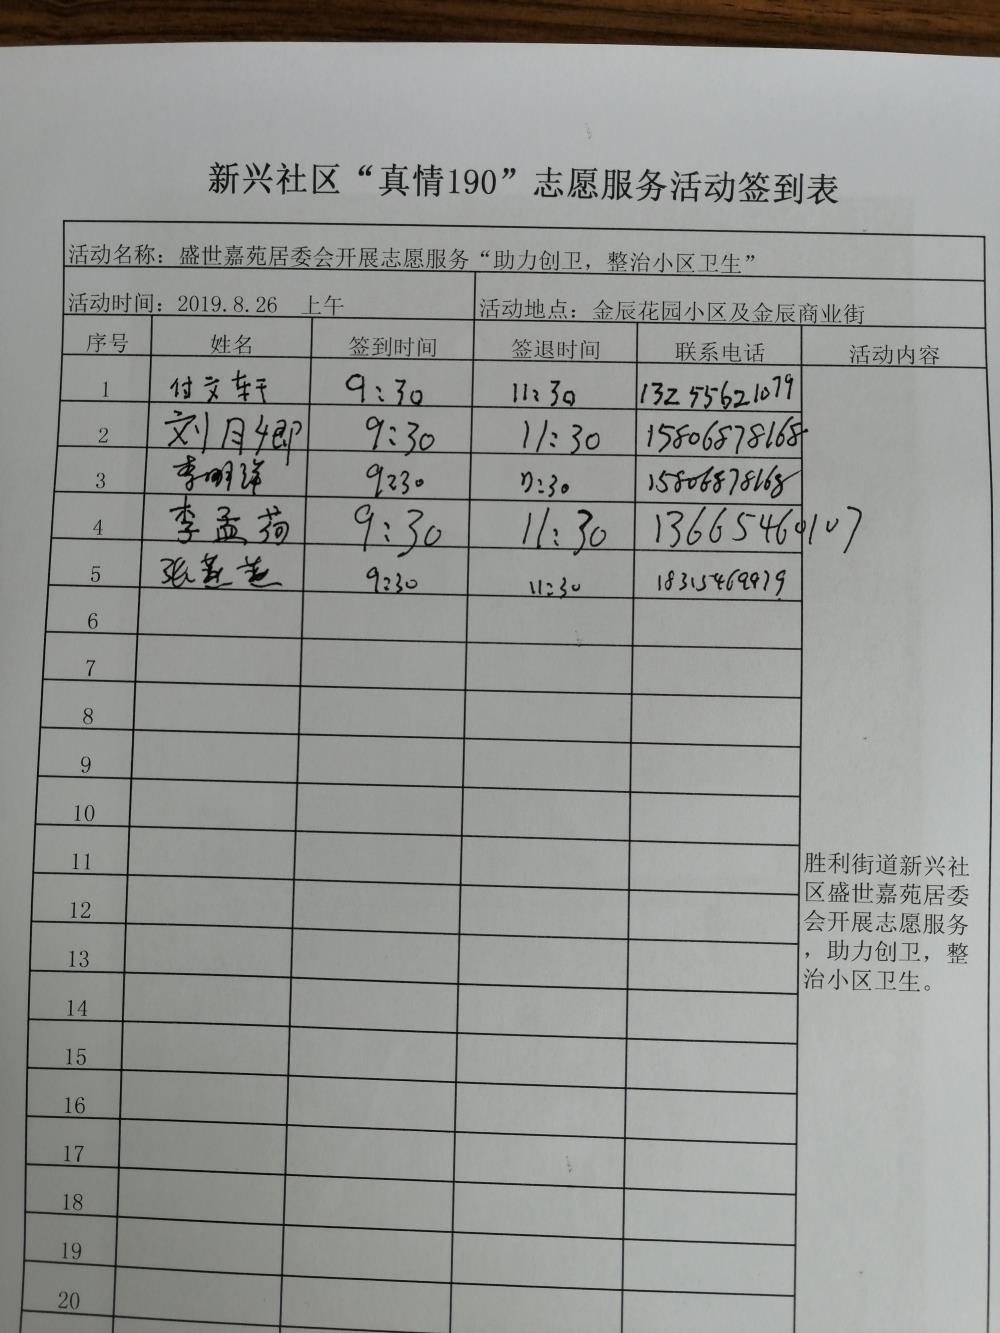 新兴社区“真情190”志愿服务活动签到表
活动名称：盛世嘉苑居委会开展志愿服务“助力创卫，整治小区卫生”
活动时间：2019.8.26 上午 活动地点：金辰花园小区及金辰商业街
序号 姓名 签到时间 签退时间 联系电话 活动内容
1 付文轩 9:30 11:30 13255621079
2 刘月娜 9:30 11:30 15806878168
3 李明洋 9:30 11:30 15806878168
4 李孟荷 9:30 11:30 13665460107
5 张燕燕 9:30 11:30
6
7
8
9
10
11
12
13
14
15
16
17
18
19
20
胜利街道新兴社
区盛世嘉苑居委
会开展志愿服务
，助力创卫，整
治小区卫生。